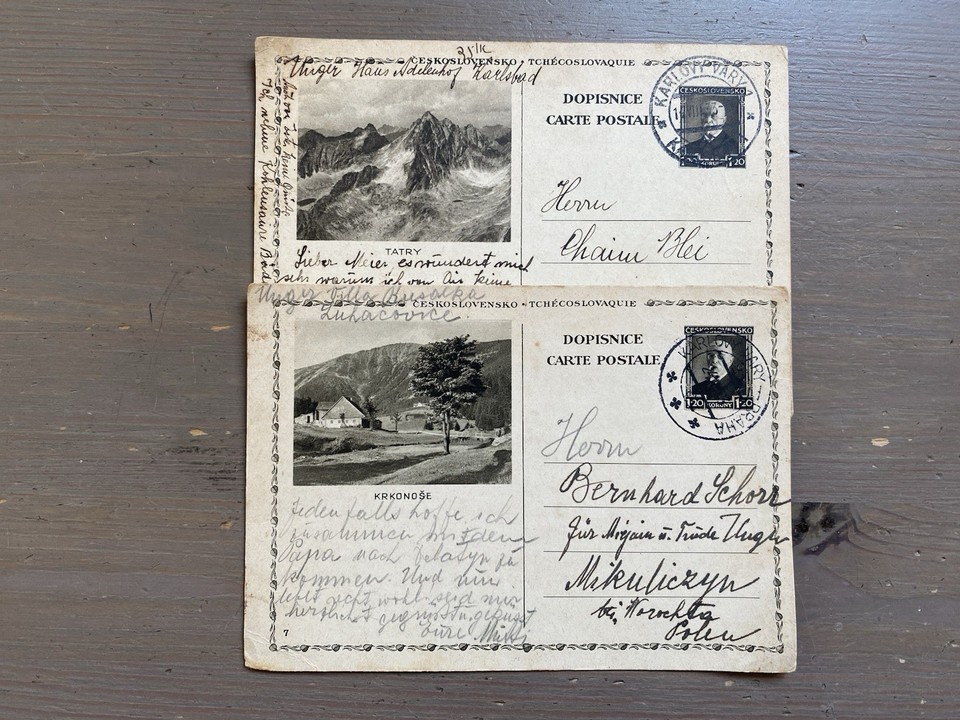 35/IX
ČESKOSLOVENSKO • TCHÉCOSLOVAQUIE
Unger Haus Adelenhof Karlsbad
DOPISNICE
CARTE POSTALE
KARLOVY VARY
ČESKOSLOVENSKO
1·20
Herrn
Chaim Blei
TATRY
Lieber Meier es wundert mich
sehr warum ich von Dir keine
Ich nehme Kohlensäure Bad
Unger Villa
Luhačovice.
ČESKOSLOVENSKO • TCHÉCOSLOVAQUIE
DOPISNICE
CARTE POSTALE
ČESKOSLOVENSKO
1·20 KORUNY 1·20
KARLOVY VARY - PRAHA
KRKONOŠE
Herrn
Bernhard Schorr
für Mirjam u. Trude Unger
Mikuliczyn
bei Worochta
Polen
Jedenfalls hoffe ich
zusammen mit dem
Papa nach Delatyn zu
kommen. Und nun
lebt recht wohl seid mir
herzlichst gegrüsst u. geküsst
Eure Mutti
7